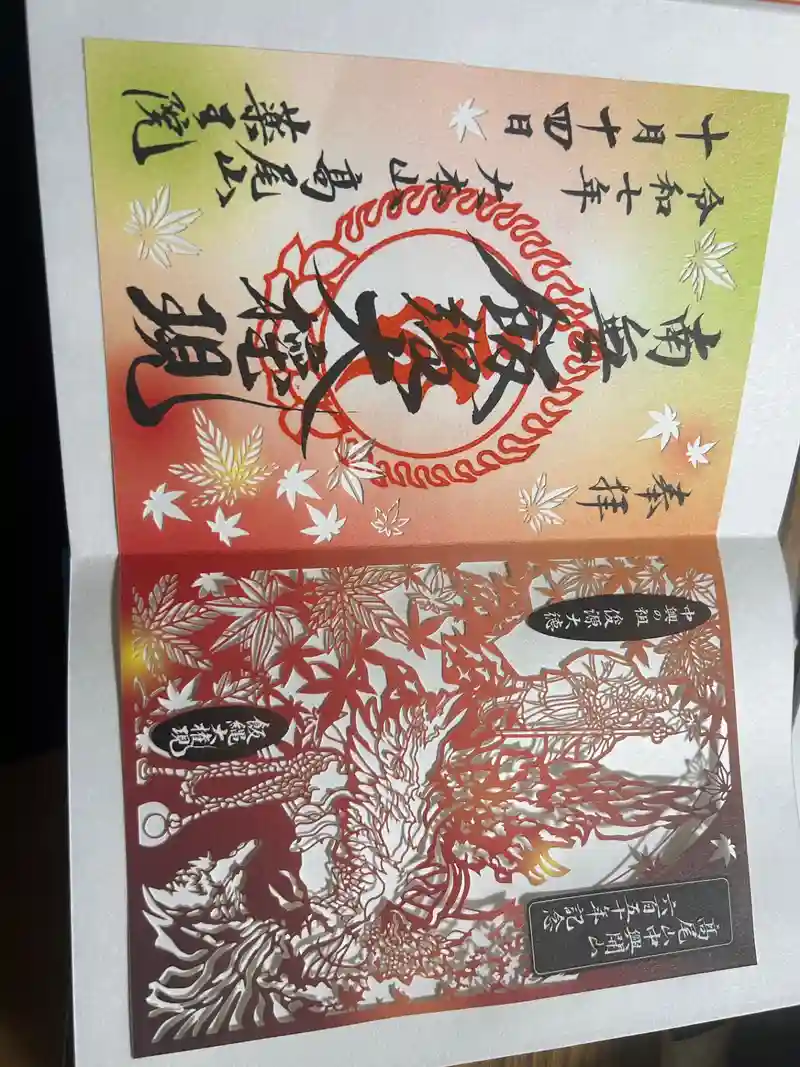 高尾山中興開山
六百五十年記念
中興の祖 俊源大徳
飯縄大権現
奉拝
南無飯縄大権現
令和七年
十月十四日
大本山高尾山
薬王院